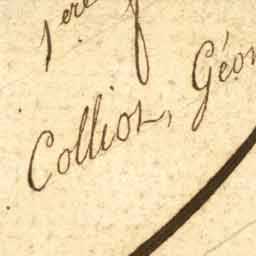 1ere
Colliot, Géo